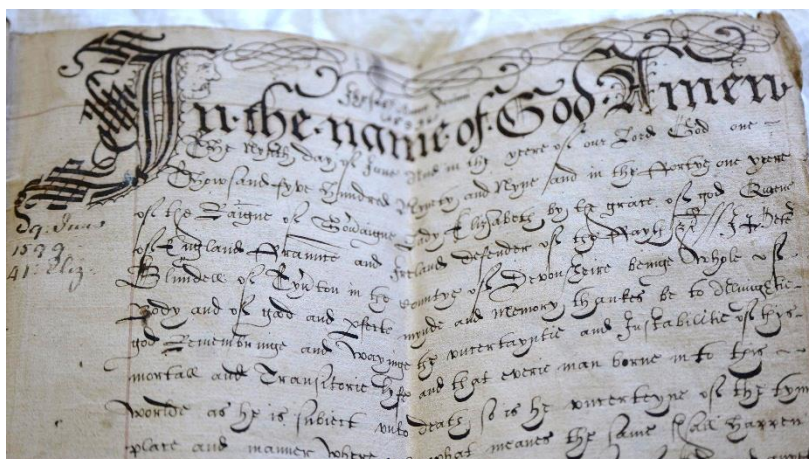 In·the·name·of·God·Amen
The Nynth day of June And in the yeere of our Lord God one
Thowsand fyve hundred Nynety and Nyne and in the Fortye one yeere
of the Raigne of Lady Elizabeth by the grace of god Queene
of England Fraunce and Ireland defender of the Fayth &c I Peter
Blundell of in the Countye of Devonsheire beinge whole of
Body and of good and mynde and Memory thankes be to
god Rememberinge and wayinge the uncertayntie and Instabilitie of this
mortall and Transitorie lyfe and that everie man borne in to this
worlde as he is subiect unto Death so is he uncerteyne of the tym
place and manner where what meanes the same shall happen
1599
41 Eliz.